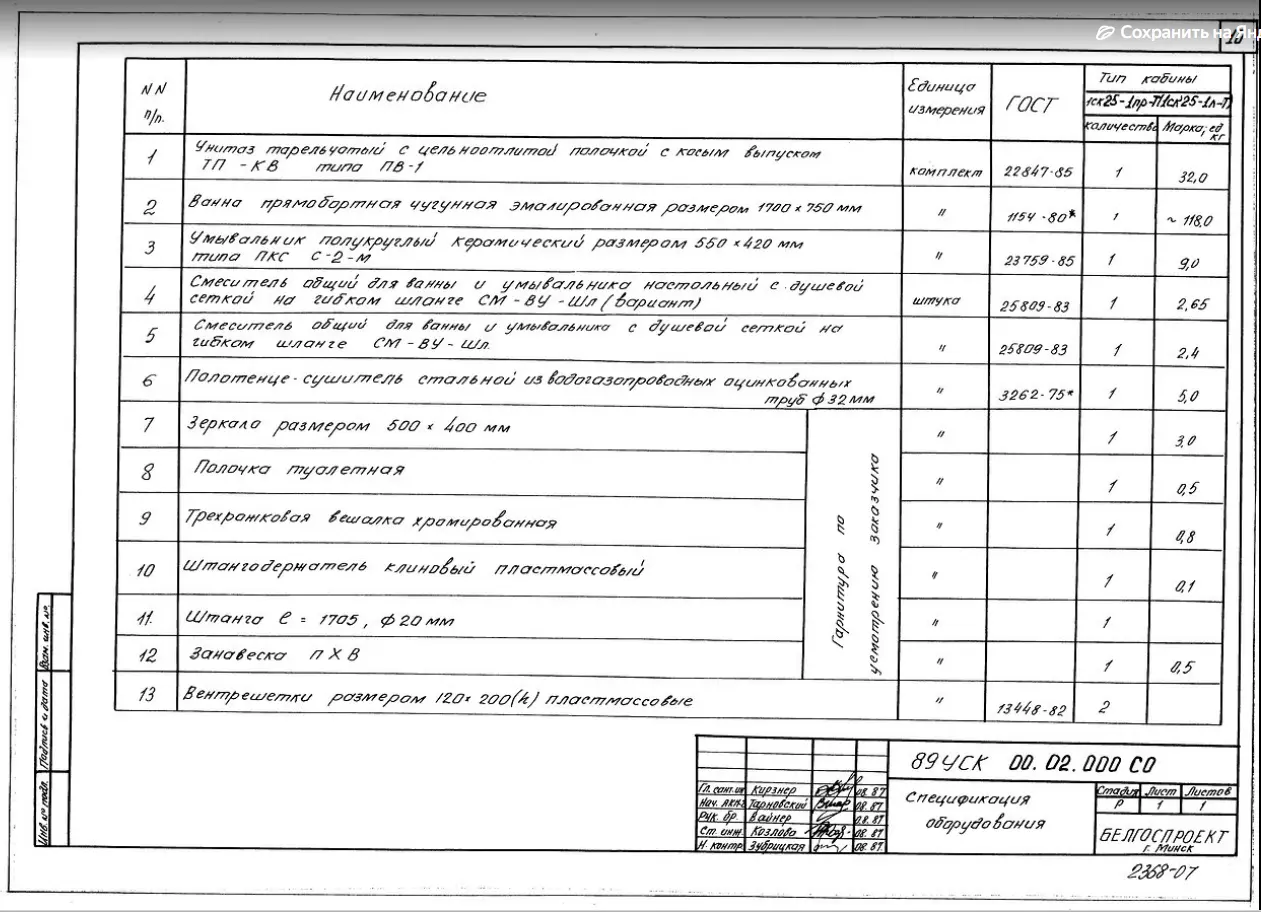 Сохранить на Янд
10
NN п/п.
Наименование
Единица измерения
ГОСТ
Тип кабины
1ск25-1пр-П 1ск25-1л-П
количество
Марка, ед кг
1 Унитаз тарельчатый с цельноотлитой полочкой с косым выпуском
ТП -КВ типа ПВ-1 комплект 22847-85 1 32,0
2 Ванна прямобортная чугунная эмалированная размером 1700 × 750 мм " 1154 -80* 1 ~ 118,0
3 Умывальник полукруглый керамический размером 550 × 420 мм
типа ПКС С-2-м " 23759-85 1 9,0
4 Смеситель общий для ванны и умывальника настольный с душевой
сеткой на гибком шланге СМ-ВУ-Шл (вариант) штука 25809-83 1 2,65
5 Смеситель общий для ванны и умывальника с душевой сеткой на
гибком шланге СМ-ВУ-Шл. " 25809-83 1 2,4
6 Полотенце-сушитель стальной из водогазопроводных оцинкованных
труб ф 32 мм " 3262-75* 1 5,0
7 Зеркало размером 500 × 400 мм " 1 3,0
8 Полочка туалетная " 1 0,5
9 Трехрожковая вешалка хромированная " 1 0,8
10 Штангодержатель клиновый пластмассовый " 1 0,1
11. Штанга ℓ = 1705, ф 20 мм " 1
12 Занавеска ПХВ " 1 0,5
Гарнитура по
усмотрению заказчика
13 Вентрешетки размером 120× 200(h) пластмассовые " 13448-82 2
Взам. инв. №.
Подпись и дата
Инв. № подл.
89УСК 00.02.000 СО
Гл. сант. ин Кирзнер 08.87
Нач. АКМ Тарновский 08.87
Рук. бр. Вайнер 08.87
Ст. инж. Козлова 08.87
Н. контр Зубрицкая 08.87
Спецификация
оборудования
Стадия Лист Листов
Р 1 1
БЕЛГОСПРОЕКТ
г. Минск
2368-07